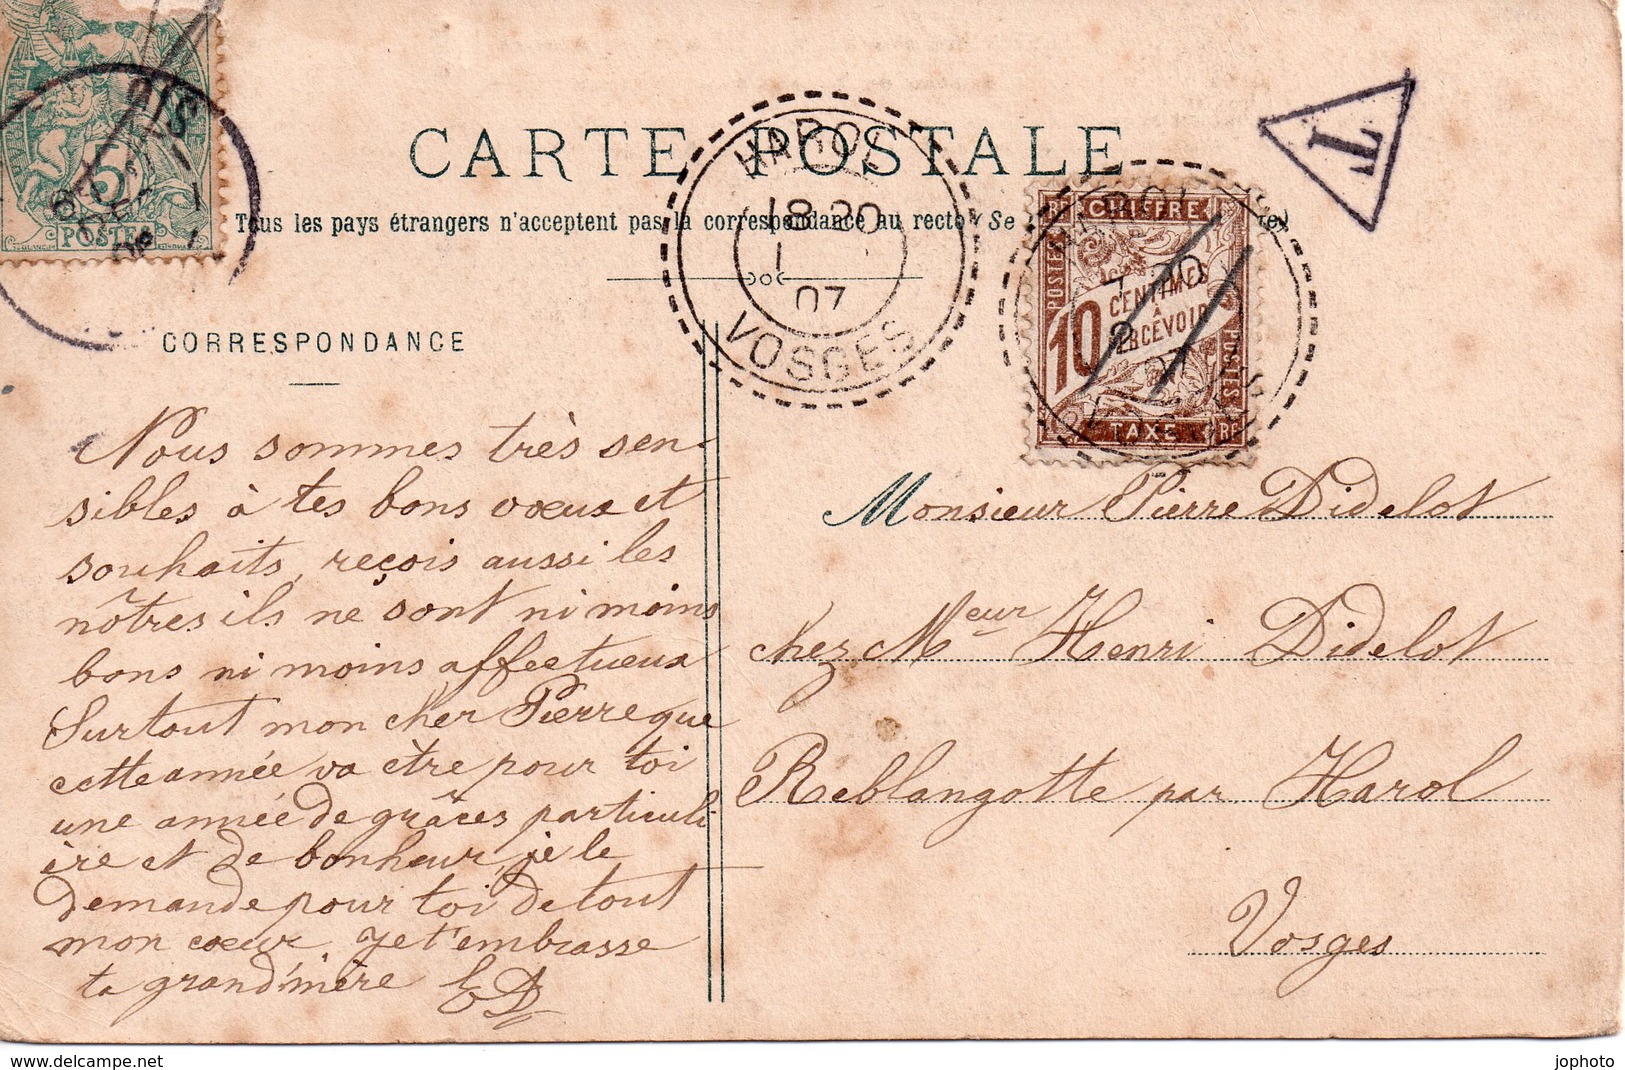 CARTE POSTALE
Tous les pays étrangers n'acceptent pas la correspondance au recto Se
HAROL
18 30
1
07
VOSGES
T
POSTES
5
CHIFFRE
10
CENTIMES
A
PERCEVOIR
POSTES
POSTES
TAXE
RF
CORRESPONDANCE
Nous sommes très sen-
sibles à tes bons voeux et
souhaits, reçois aussi les
nôtres ils ne sont ni moins
bons ni moins affectueux
Surtout mon cher Pierre que
cette année va être pour toi
une année de grâces particuli
ère et de bonheur, je le
demande pour toi de tout
mon coeur. Je t'embrasse
ta grand'mère ED
Monsieur Pierre Didelot
chez Meur Henri Didelot
Reblangotte par Harol
Vosges
www.delcampe.net
jophoto